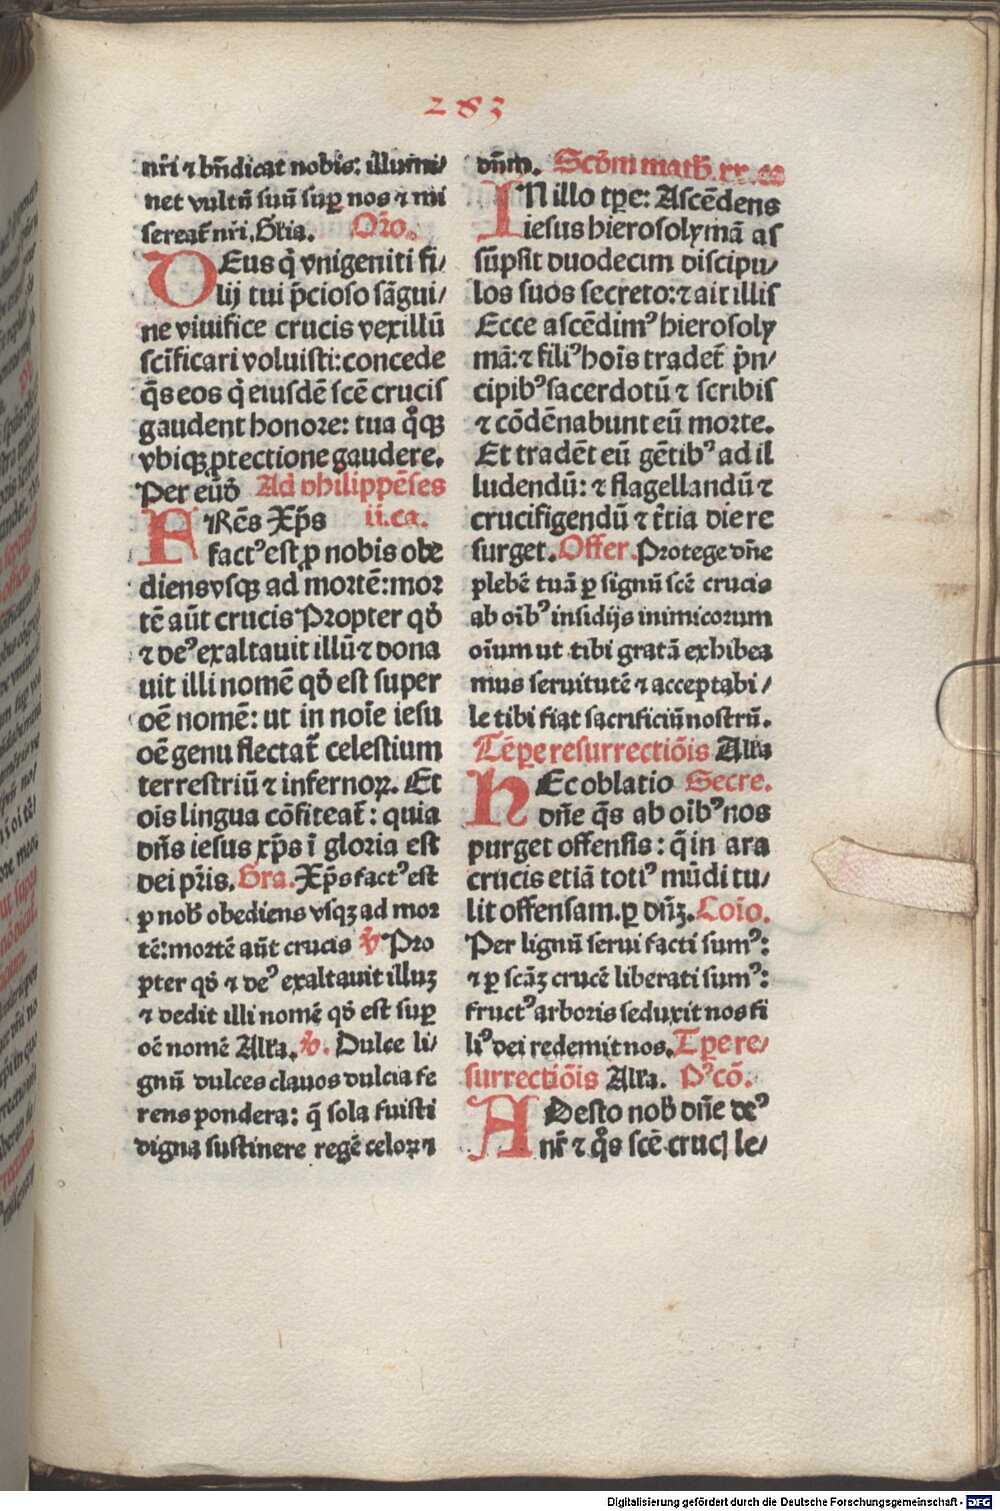 283
nr̄i ⁊ bn̄dicat nobis: illumi/
net vultū suū suꝑ nos ⁊ mi
sereat̄ nr̄i. Gl̄ia. Or̄o.
DEus q̄ vnigeniti fi/
lij tui p̄cioso sāgui/
ne viuifice crucis vexillū
scīficari voluisti: concede
q̄s eos q̄ eiusdē scē crucis
gaudent honore: tua q̊qꝫ
vbiqꝫ ꝓtectione gaudere.
Per eūd̄ Ad philippēses
FRēs Xp̄s ii.ca.
factꝰ est ꝓ nobis obe
diens vsqꝫ ad mortē: mor
tē aūt crucis Propter qd̄
⁊ deꝰ exaltauit illū ⁊ dona
uit illi nomē qd̄ est super
oē nomē: ut in noīe iesu
oē genu flectat̄ celestium
terrestriū ⁊ infernoꝝ. Et
oīs lingua cōfiteat̄: quia
dn̄s iesus xp̄s ī gloria est
dei pr̄is. Gra. Xp̄s factꝰ est
ꝓ nob̄ obediens vsqꝫ ad mor
tē: mortē aūt crucis ℣ Pro
pter qd̄ ⁊ deꝰ exaltauit illuꝫ
⁊ dedit illi nomē qd̄ est suꝑ
oē nomē Alľa. ℣. Dulce li/
gnū dulces clauos dulcia fe
rens pondera: q̄ sola fuisti
digna sustinere regē celoꝝ ⁊
dn̄m. Scd̄m math̄. xx. ca
IN illo tꝑe: Ascēdens
iesus hierosolymā as
sūpsit duodecim discipu/
los suos secreto: ⁊ ait illis
Ecce ascēdimꝰ hierosoly
mā: ⁊ filiꝰ hoīs tradet̄ p̄n/
cipibꝰ sacerdotū ⁊ scribis
⁊ cōdēnabunt eū morte.
Et tradēt eū gētibꝰ ad il
ludendū: ⁊ flagellandū ⁊
crucifigendū ⁊ t̄tia die re
surget. Offer. Protege dn̄e
plebē tuā ꝑ signū scē crucis
ab oībꝰ insidijs inimicorum
oīum ut tibi gratā exhibea
mus seruitutē ⁊ acceptabi/
le tibi fiat sacrificiū nostrū.
Tēꝑe resurrectiōis Alľa
HEc oblatio Secre.
dn̄e q̄s ab oībꝰ nos
purget offensis: q̄ in ara
crucis etiā totiꝰ mūdi tu/
lit offensam. ꝑ dn̄ꝫ. Coīo.
Per lignū serui facti sumꝰ:
⁊ ꝑ scāꝫ crucē liberati sumꝰ:
fructꝰ arboris seduxit nos fi
liꝰ dei redemit nos. Tꝑe re/
surrectiōis Alľa. Pꝰcō.
ADesto nob̄ dn̄e deꝰ
nr̄ ⁊ q̊s scē cruc̄ le/
Digitalisierung gefördert durch die Deutsche Forschungsgemeinschaft - DFG